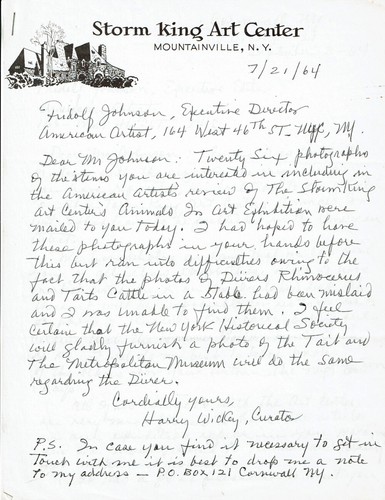 Storm King Art Center
MOUNTAINVILLE, N.Y.
7/21/64
Fridolf Johnson, Executive Director
American Artist, 164 West 46th ST. NYC, NY.
Dear Mr Johnson: Twenty Six photographs
of the items you are interested in including in
the American Artists review of The Storm King
Art Center's Animals In Art Exhibition were
mailed to you today. I had hoped to have
these photographs in your hands before
this but ran into difficulties owing to the
fact that the photos of Dürers Rhinocerus
and Taits Cattle in a Stable had been mislaid
and I was unable to find them. I feel
certain that the New York Historical Society
will gladly furnish a photo of the Tait and
The Metropolitan Museum will do the same
regarding the Dürer.
Cordially yours,
Harry Wickey, Curator
P.S. In case you find it necessary to get in
Touch with me it is best to drop me a note
to my address — P.O. BOX 121 Cornwall NY.